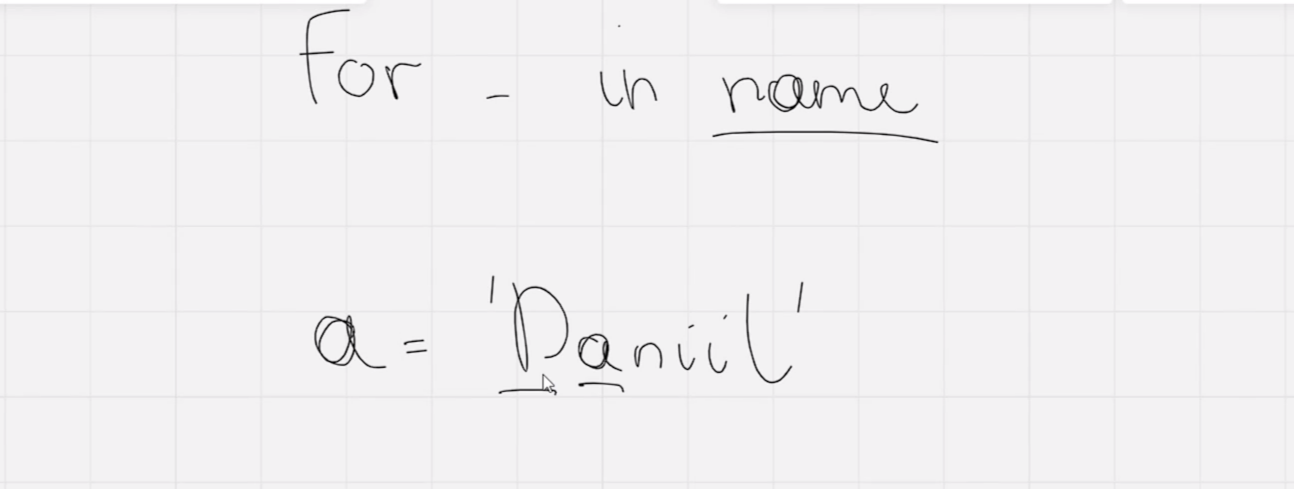 For - in name
a = 'Daniil'